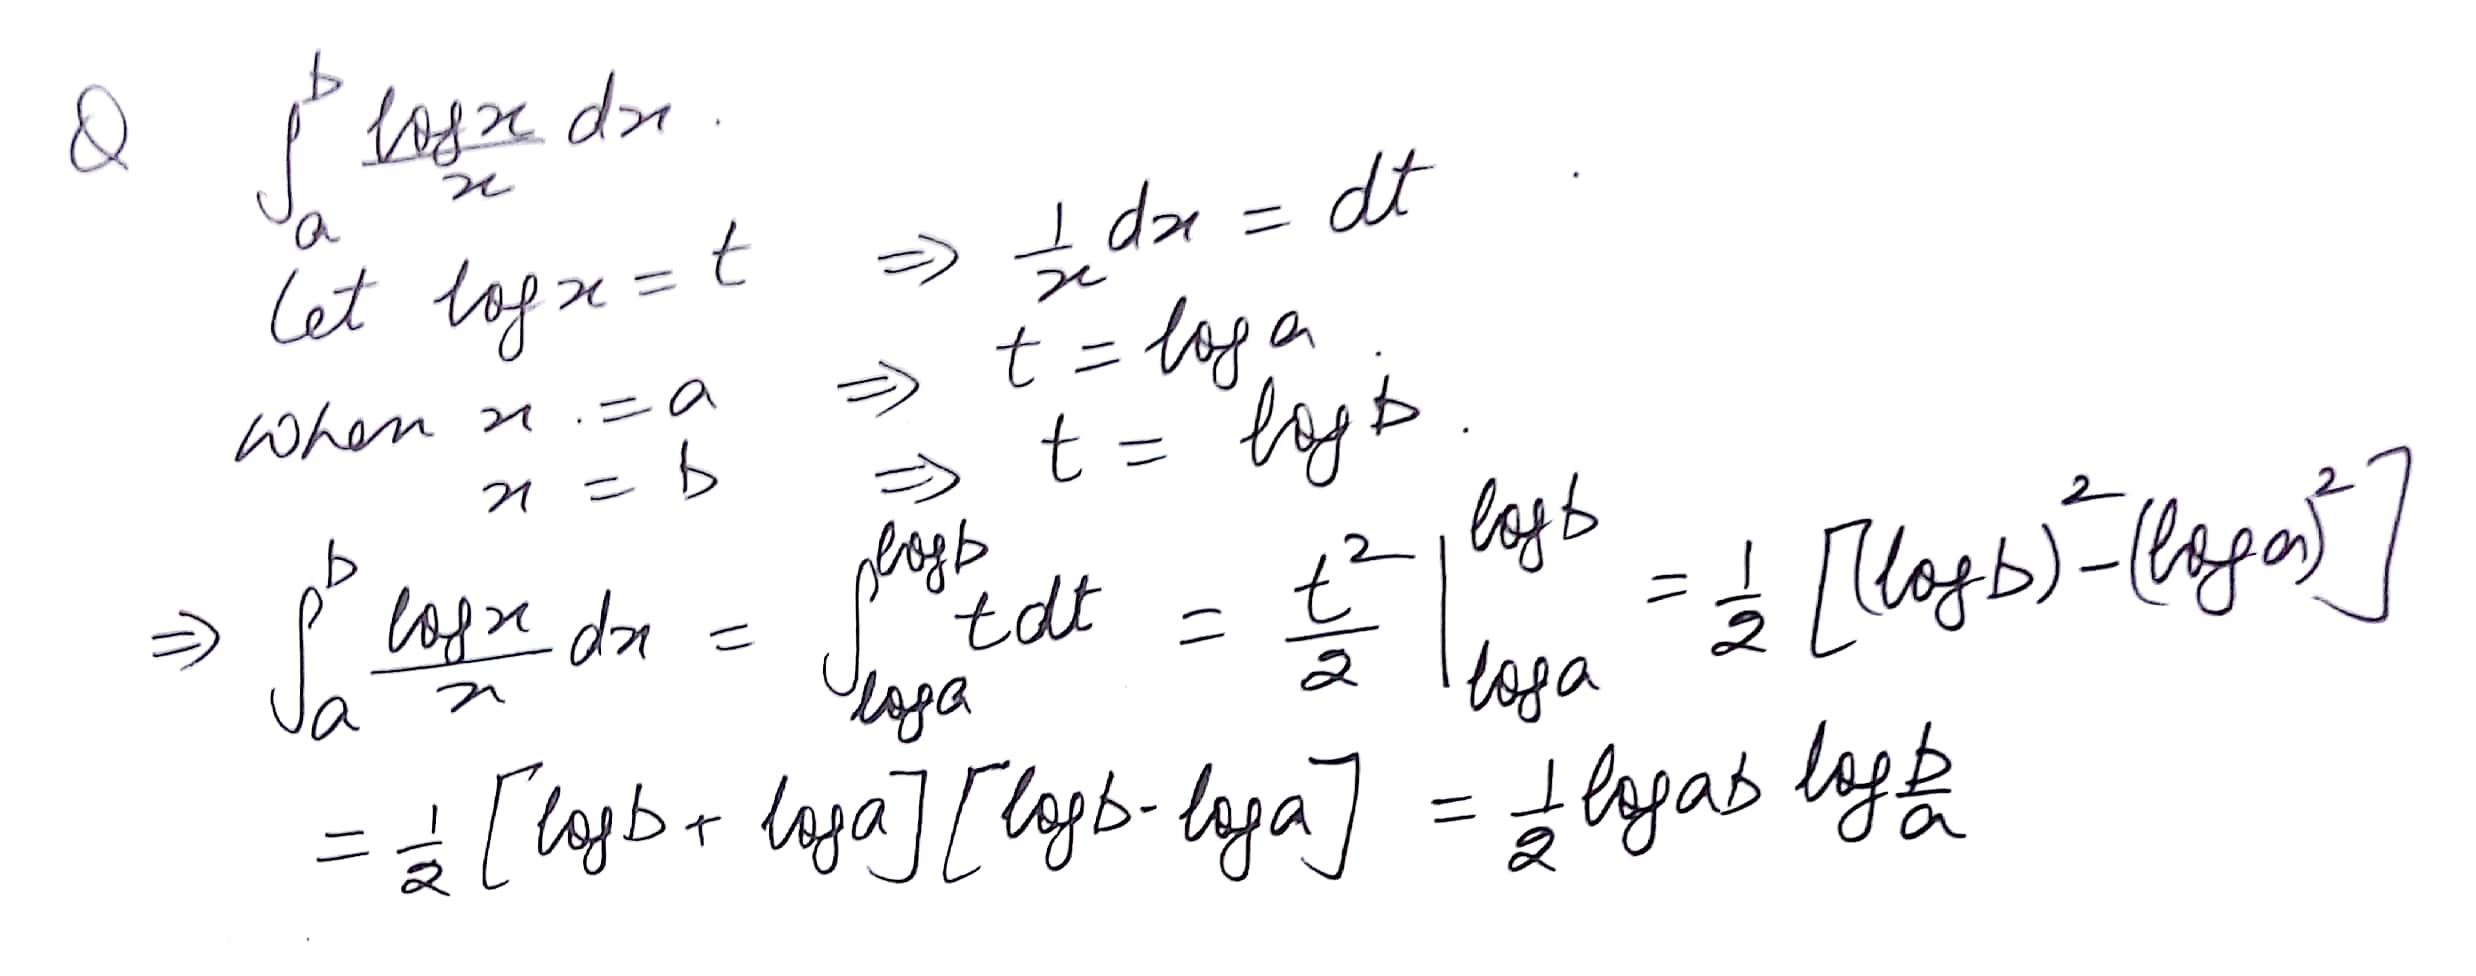 Q ∫_a^b \frac{log x}{x} dx.
Let log x = t ⇒ \frac{1}{x} dx = dt
when x = a ⇒ t = log a.
x = b ⇒ t = log b.
⇒ ∫_a^b \frac{log x}{x} dx = ∫_{log a}^{log b} t dt = \frac{t^2}{2} |_{log a}^{log b} = \frac{1}{2} [(log b)^2 - (log a)^2]
= \frac{1}{2} [log b + log a] [log b - log a] = \frac{1}{2} log ab log \frac{b}{a}